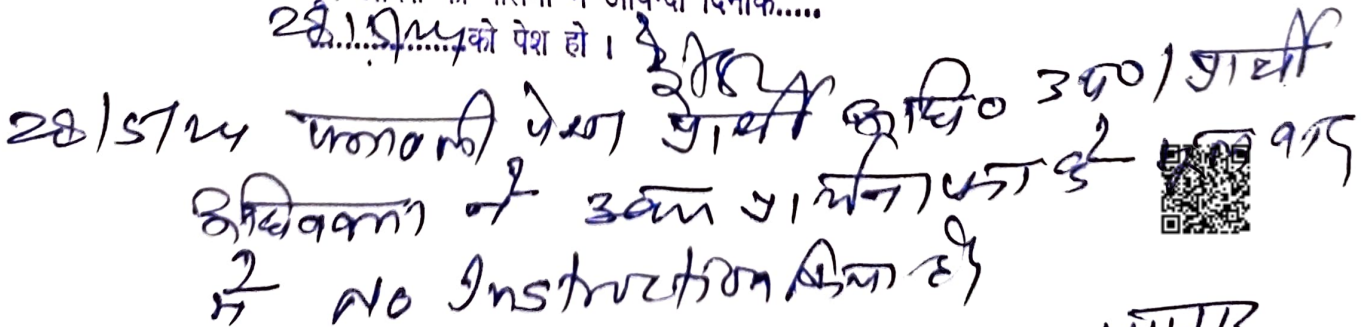 दिनांक.....
28/5/24 को पेश हो ।
28/5/24 पत्रावली पेश प्रार्थी अधि० उप० / प्रार्थी
अधिवक्ता ने उक्त प्रार्थना पत्र के मूल वाद
में No Instruction किया है